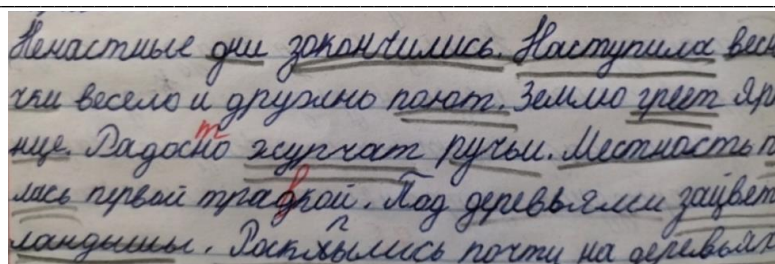 Ненастные дни закончились. Наступила весн
чки весело и дружно поют. Землю греет яр
нце. Радосно т журчат ручьи. Местность п
лась первой травкой. Под деревьями зацвет
ландыши. Раскрылись почти на деревьях